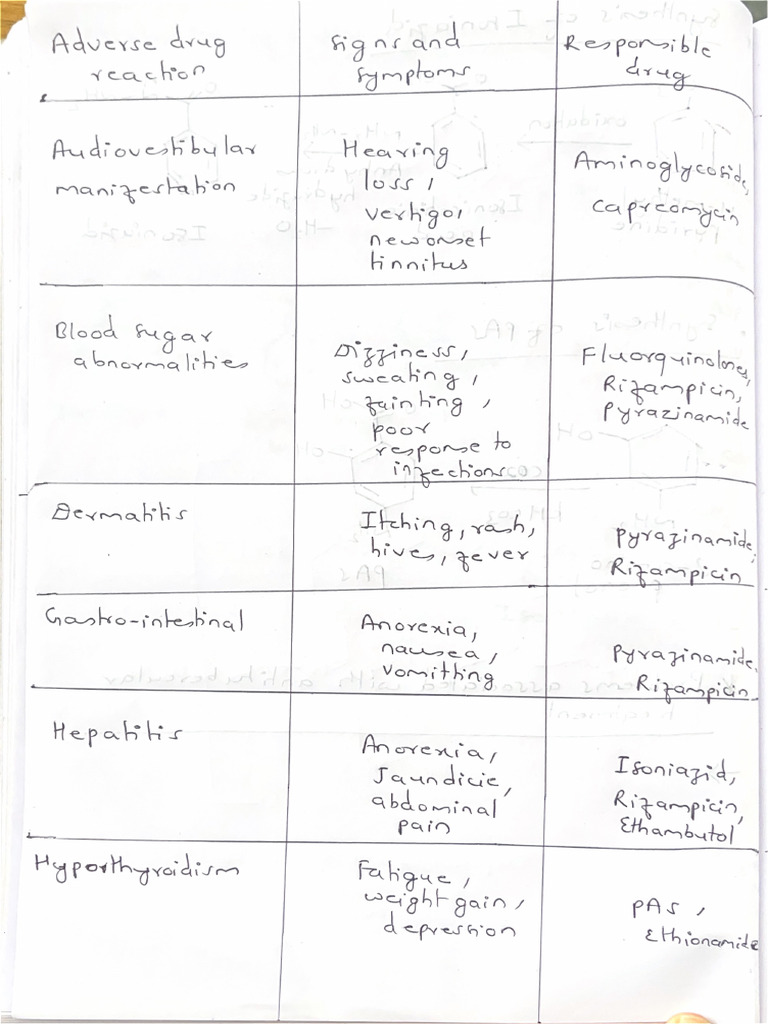 Adverse drug reaction
Signs and symptoms
Responsible drug
Audiovestibular
manifestation
Hearing
loss,
vertigo,
new onset
tinnitus
Aminoglycoside,
capreomycin
Blood sugar
abnormalities
Dizziness,
sweating,
fainting,
poor
response to
infections
Fluorquinolones,
Rifampicin,
Pyrazinamide
Dermatitis
Itching, rash,
hives, fever
pyrazinamide,
Rifampicin
Gastro-intestinal
Anorexia,
nausea,
vomithing
pyrazinamide,
Rifampicin
Hepatitis
Anorexia,
Jaundicie,
abdominal
pain
Isoniazid,
Rifampicin,
Ethambutol
Hyporthyroidism
Fatigue,
weight gain,
depression
PAS,
Ethionamide